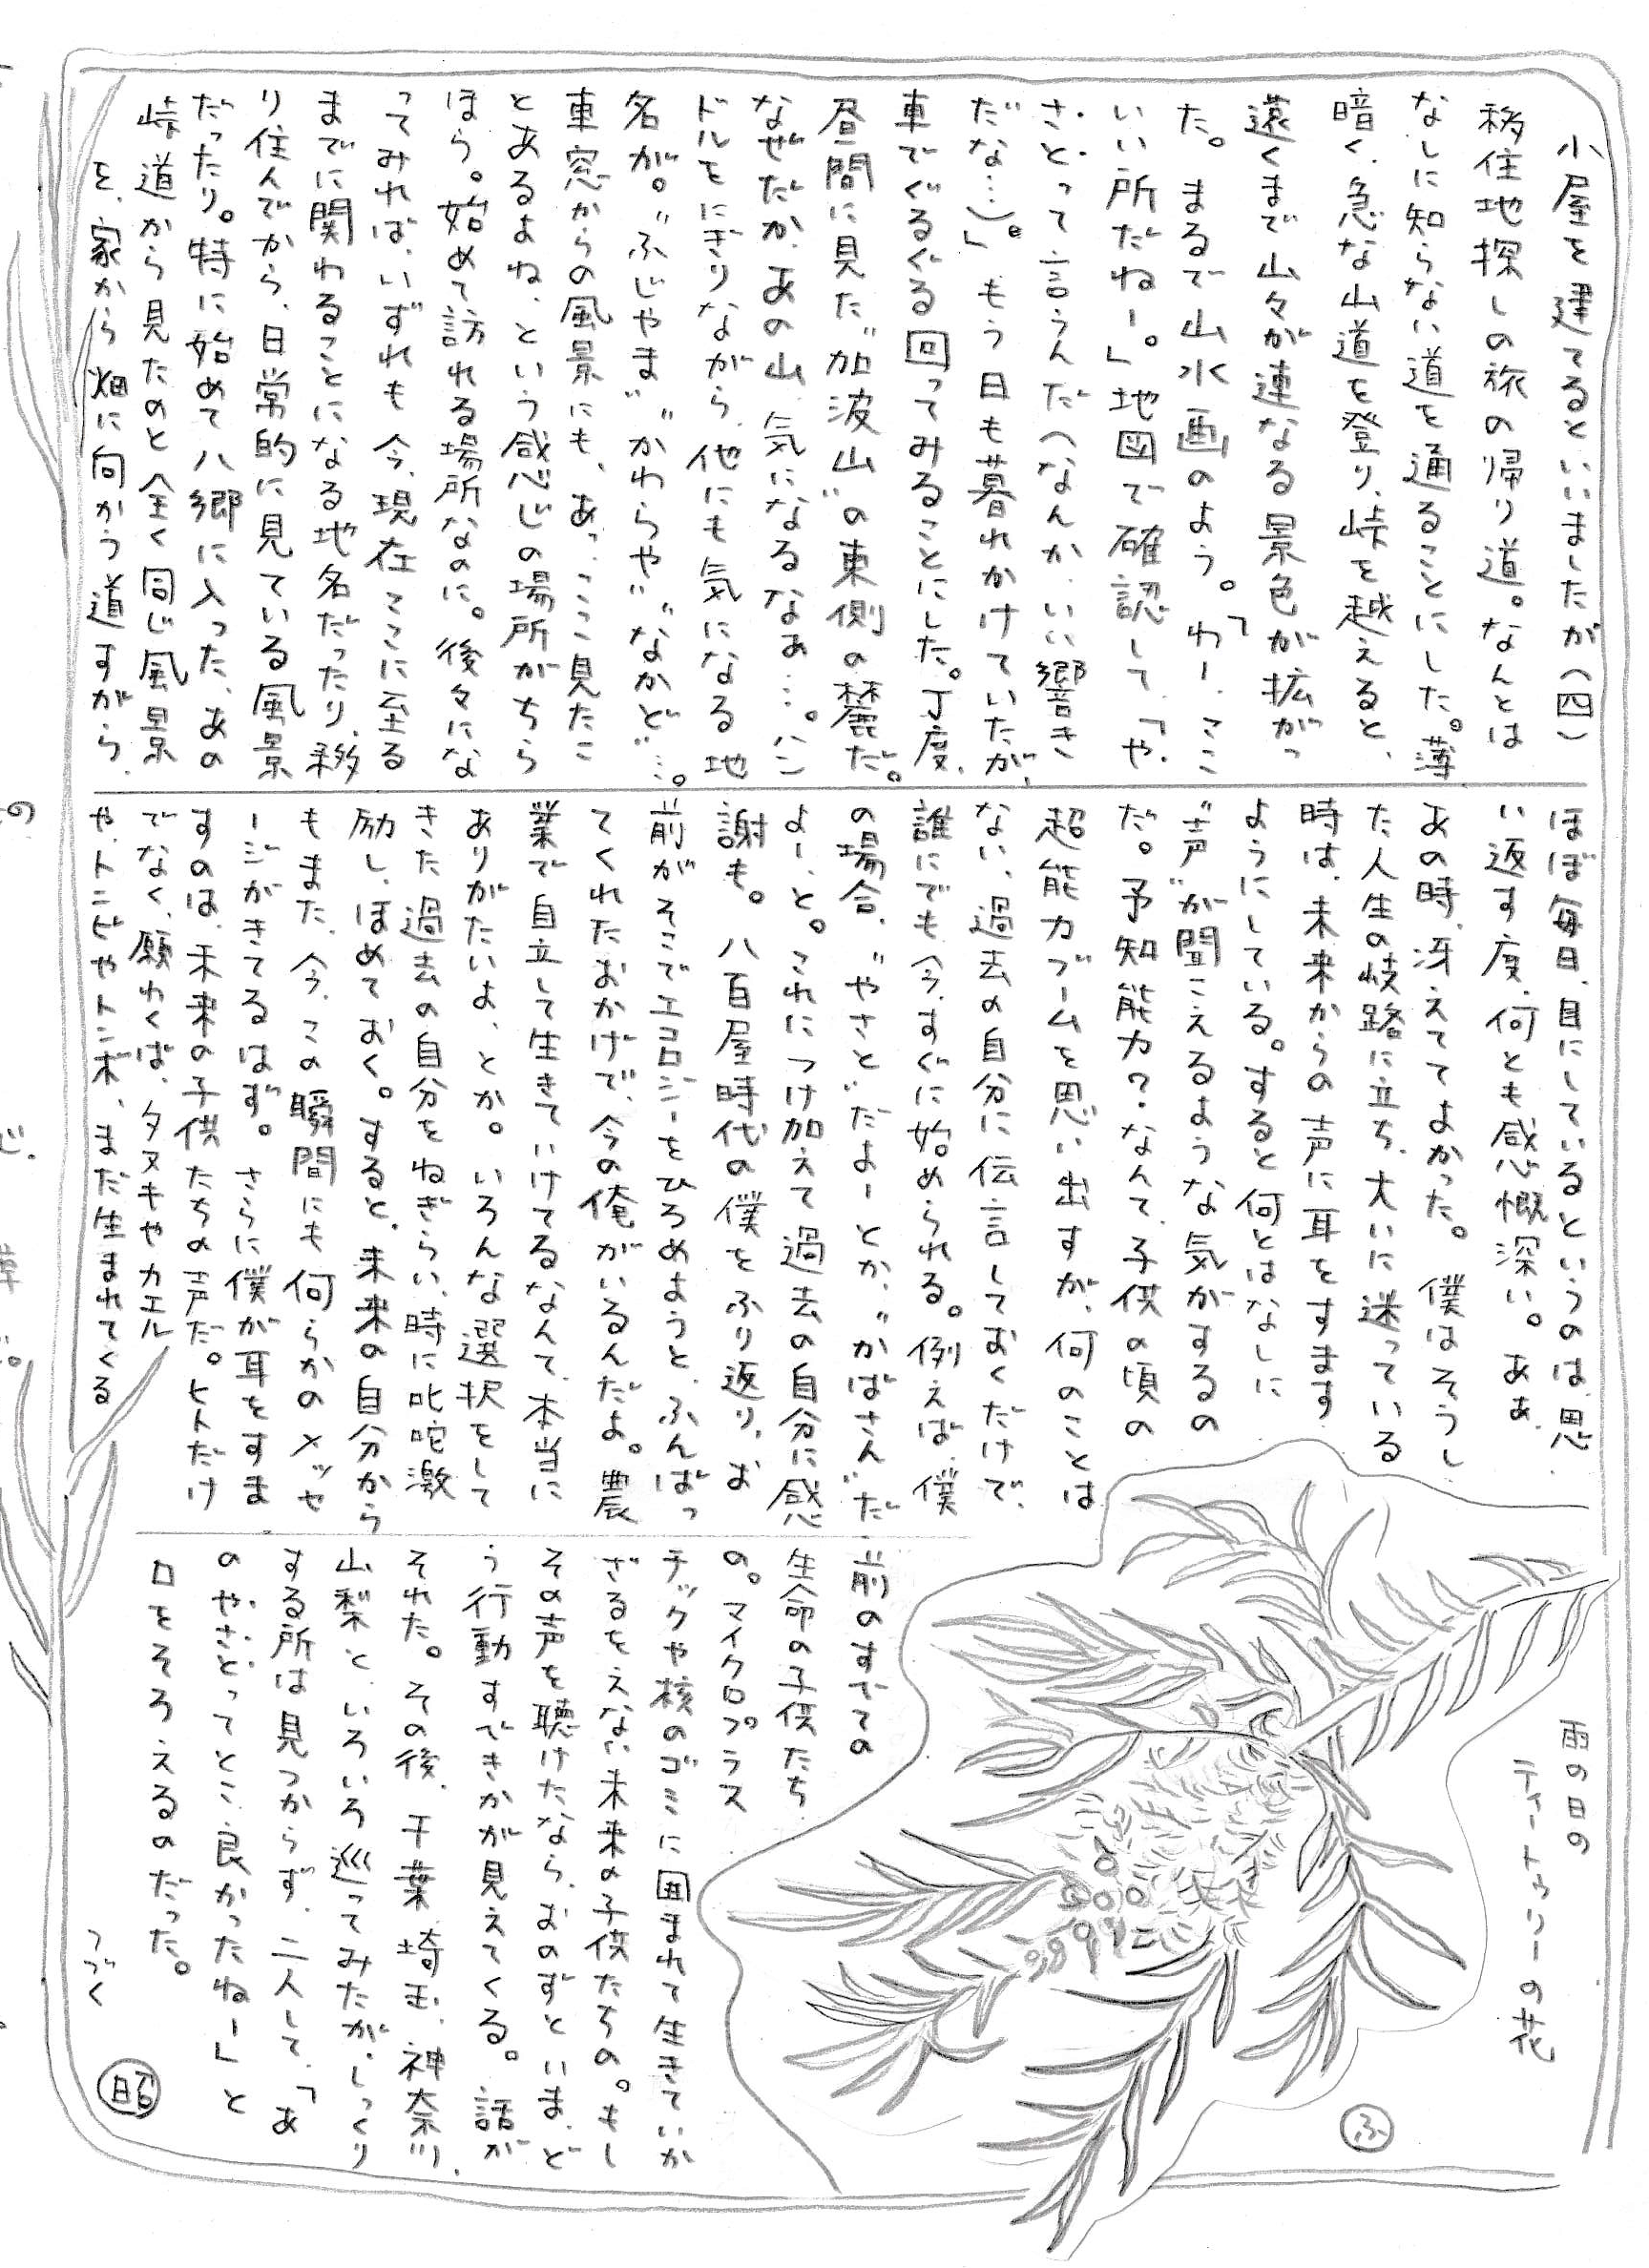 小屋を建てるといいましたが(四)
移住地探しの旅の帰り道。なんとは
なしに知らない道を通ることにした。薄
暗く、急な山道を登り、峠を越えると、
遠くまで山々が連なる景色が拡がっ
た。まるで山水画のよう。「わー、ここ
いい所だねー。」地図で確認して、「や
さとって言うんだ(なんか、いい響き
だな…)。」もう日も暮れかけていたが、
車でぐるぐる回ってみることにした。丁度、
昼間に見た〝加波山〟の東側の麓だ。
なぜだか、あの山、気になるなぁ…。ハン
ドルをにぎりながら、他にも気になる地
名が。〝ふじやま〟〝かわらや〟〝なかど〟…。
車窓からの風景にも、あっ、ここ見たこ
とあるよね、という感じの場所がちら
ほら。始めて訪れる場所なのに。後々にな
ってみれば、いずれも今、現在ここに至る
までに関わることになる地名だったり、移
り住んでから、日常的に見ている風景
だったり。特に始めて八郷に入った、あの
峠道から見たのと全く同じ風景
を、家から畑に向かう道すがら、
ほぼ毎日、目にしているというのは、思
い返す度、何とも感慨深い。あぁ、
あの時、冴えててよかった。僕はそうし
た人生の岐路に立ち、大いに迷っている
時は、未来からの声に耳をすます
ようにしている。すると何とはなしに
〝声〟が聞こえるような気がするの
だ。予知能力?なんて、子供の頃の
超能力ブームを思い出すが、何のことは
ない、過去の自分に伝言しておくだけで、
誰にでも今、すぐに始められる。例えば、僕
の場合、〝やさと〟だよーとか、〝かばさん〟だ
よー、と。これにつけ加えて過去の自分に感
謝も。八百屋時代の僕をふり返り、お
前がそこでエコロジーをひろめようと、ふんばっ
てくれたおかげで、今の俺がいるんだよ。農
業で自立して生きていけてるなんて、本当に
ありがたいよ、とか。いろんな選択をして
きた過去の自分をねぎらい、時に叱咤激
励し、ほめておく。すると、未来の自分から
もまた、今、この瞬間にも何らかのメッセ
ージがきてるはず。さらに僕が耳をすま
すのは、未来の子供たちの声だ。ヒトだけ
でなく、願わくば、タヌキやカエル
や、トンビやトンボ、まだ生まれてくる
前のすべての
生命の子供たち
の。マイクロプラス
チックや核のゴミに囲まれて生きていか
ざるをえない未来の子供たちの。もし
その声を聴けたなら、おのずといま、ど
う行動すべきかが見えてくる。話が
それた。その後、千葉、埼玉、神奈川、
山梨と、いろいろ巡ってみたが、しっくり
する所は見つからず、二人して、「あ
のやさとってとこ、良かったねー」と
口をそろえるのだった。
つづく
昭
雨の日の
ティートゥリーの花
ふ